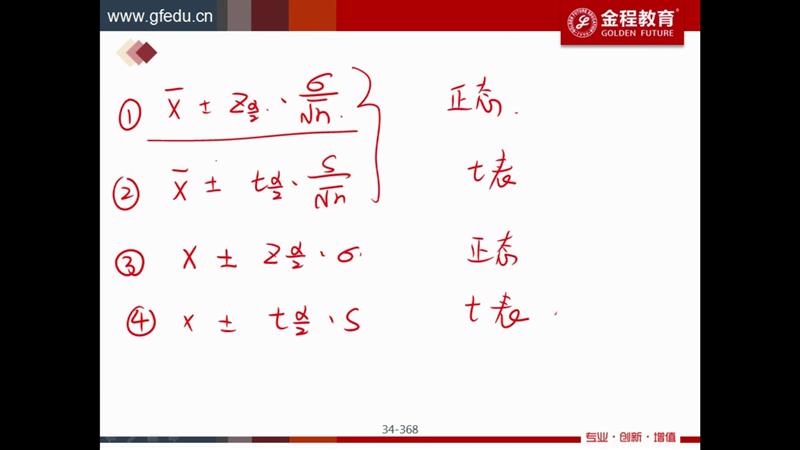 www.gfedu.cn
金程教育®
GOLDEN FUTURE
① x̄ ± z α/2 · σ/√n. 正态.
② x̄ ± t α/2 · s/√n t表
③ x ± z α/2 · σ. 正态
④ x ± t α/2 · s t表.
34-368
专业·创新·增值